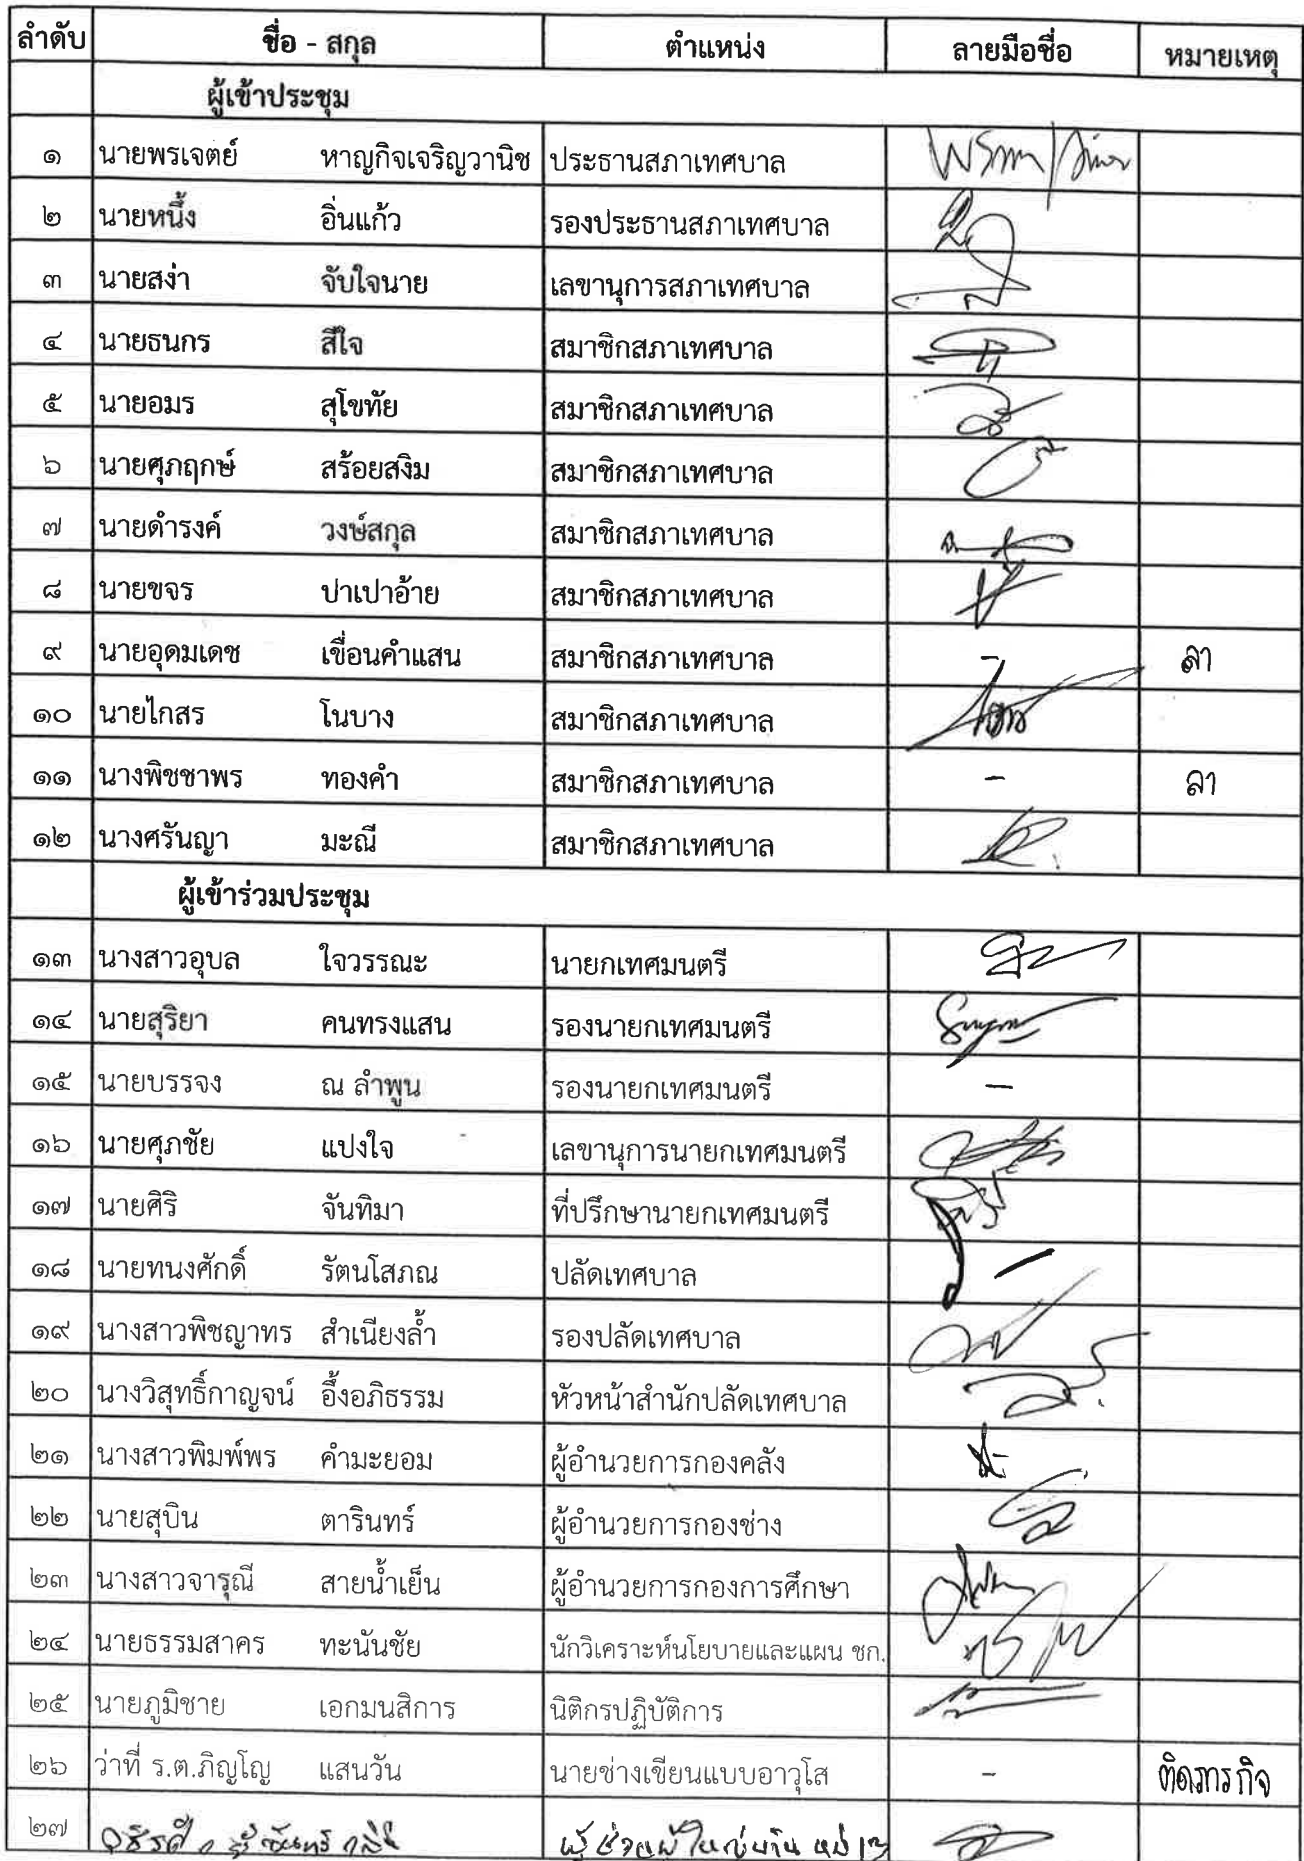 ลำดับ ชื่อ - สกุล ตำแหน่ง ลายมือชื่อ หมายเหตุ
ผู้เข้าประชุม
๑ นายพรเจตย์ หาญกิจเจริญวานิช ประธานสภาเทศบาล
๒ นายหนึ้ง อิ่นแก้ว รองประธานสภาเทศบาล
๓ นายสง่า จับใจนาย เลขานุการสภาเทศบาล
๔ นายธนกร สีใจ สมาชิกสภาเทศบาล
๕ นายอมร สุโขทัย สมาชิกสภาเทศบาล
๖ นายศุภฤกษ์ สร้อยสงิม สมาชิกสภาเทศบาล
๗ นายดำรงค์ วงษ์สกุล สมาชิกสภาเทศบาล
๘ นายขจร ปาเปาอ้าย สมาชิกสภาเทศบาล
๙ นายอุดมเดช เขื่อนคำแสน สมาชิกสภาเทศบาล - ลา
๑๐ นายไกสร โนบาง สมาชิกสภาเทศบาล
๑๑ นางพิชชาพร ทองคำ สมาชิกสภาเทศบาล - ลา
๑๒ นางศรันญา มะณี สมาชิกสภาเทศบาล
ผู้เข้าร่วมประชุม
๑๓ นางสาวอุบล ใจวรรณะ นายกเทศมนตรี
๑๔ นายสุริยา คนทรงแสน รองนายกเทศมนตรี
๑๕ นายบรรจง ณ ลำพูน รองนายกเทศมนตรี -
๑๖ นายศุภชัย แปงใจ เลขานุการนายกเทศมนตรี
๑๗ นายศิริ จันทิมา ที่ปรึกษานายกเทศมนตรี
๑๘ นายทนงศักดิ์ รัตนโสภณ ปลัดเทศบาล -
๑๙ นางสาวพิชญาทร สำเนียงล้ำ รองปลัดเทศบาล
๒๐ นางวิสุทธิ์กาญจน์ อึ้งอภิธรรม หัวหน้าสำนักปลัดเทศบาล
๒๑ นางสาวพิมพ์พร คำมะยอม ผู้อำนวยการกองคลัง
๒๒ นายสุบิน ตารินทร์ ผู้อำนวยการกองช่าง
๒๓ นางสาวจารุณี สายน้ำเย็น ผู้อำนวยการกองการศึกษา
๒๔ นายธรรมสาคร ทะนันชัย นักวิเคราะห์นโยบายและแผน ชก.
๒๕ นายภูมิชาย เอกมนสิการ นิติกรปฏิบัติการ
๒๖ ว่าที่ ร.ต.ภิญโญ แสนวัน นายช่างเขียนแบบอาวุโส - ติดภารกิจ
๒๗ ผู้ช่วยผู้ใหญ่บ้าน